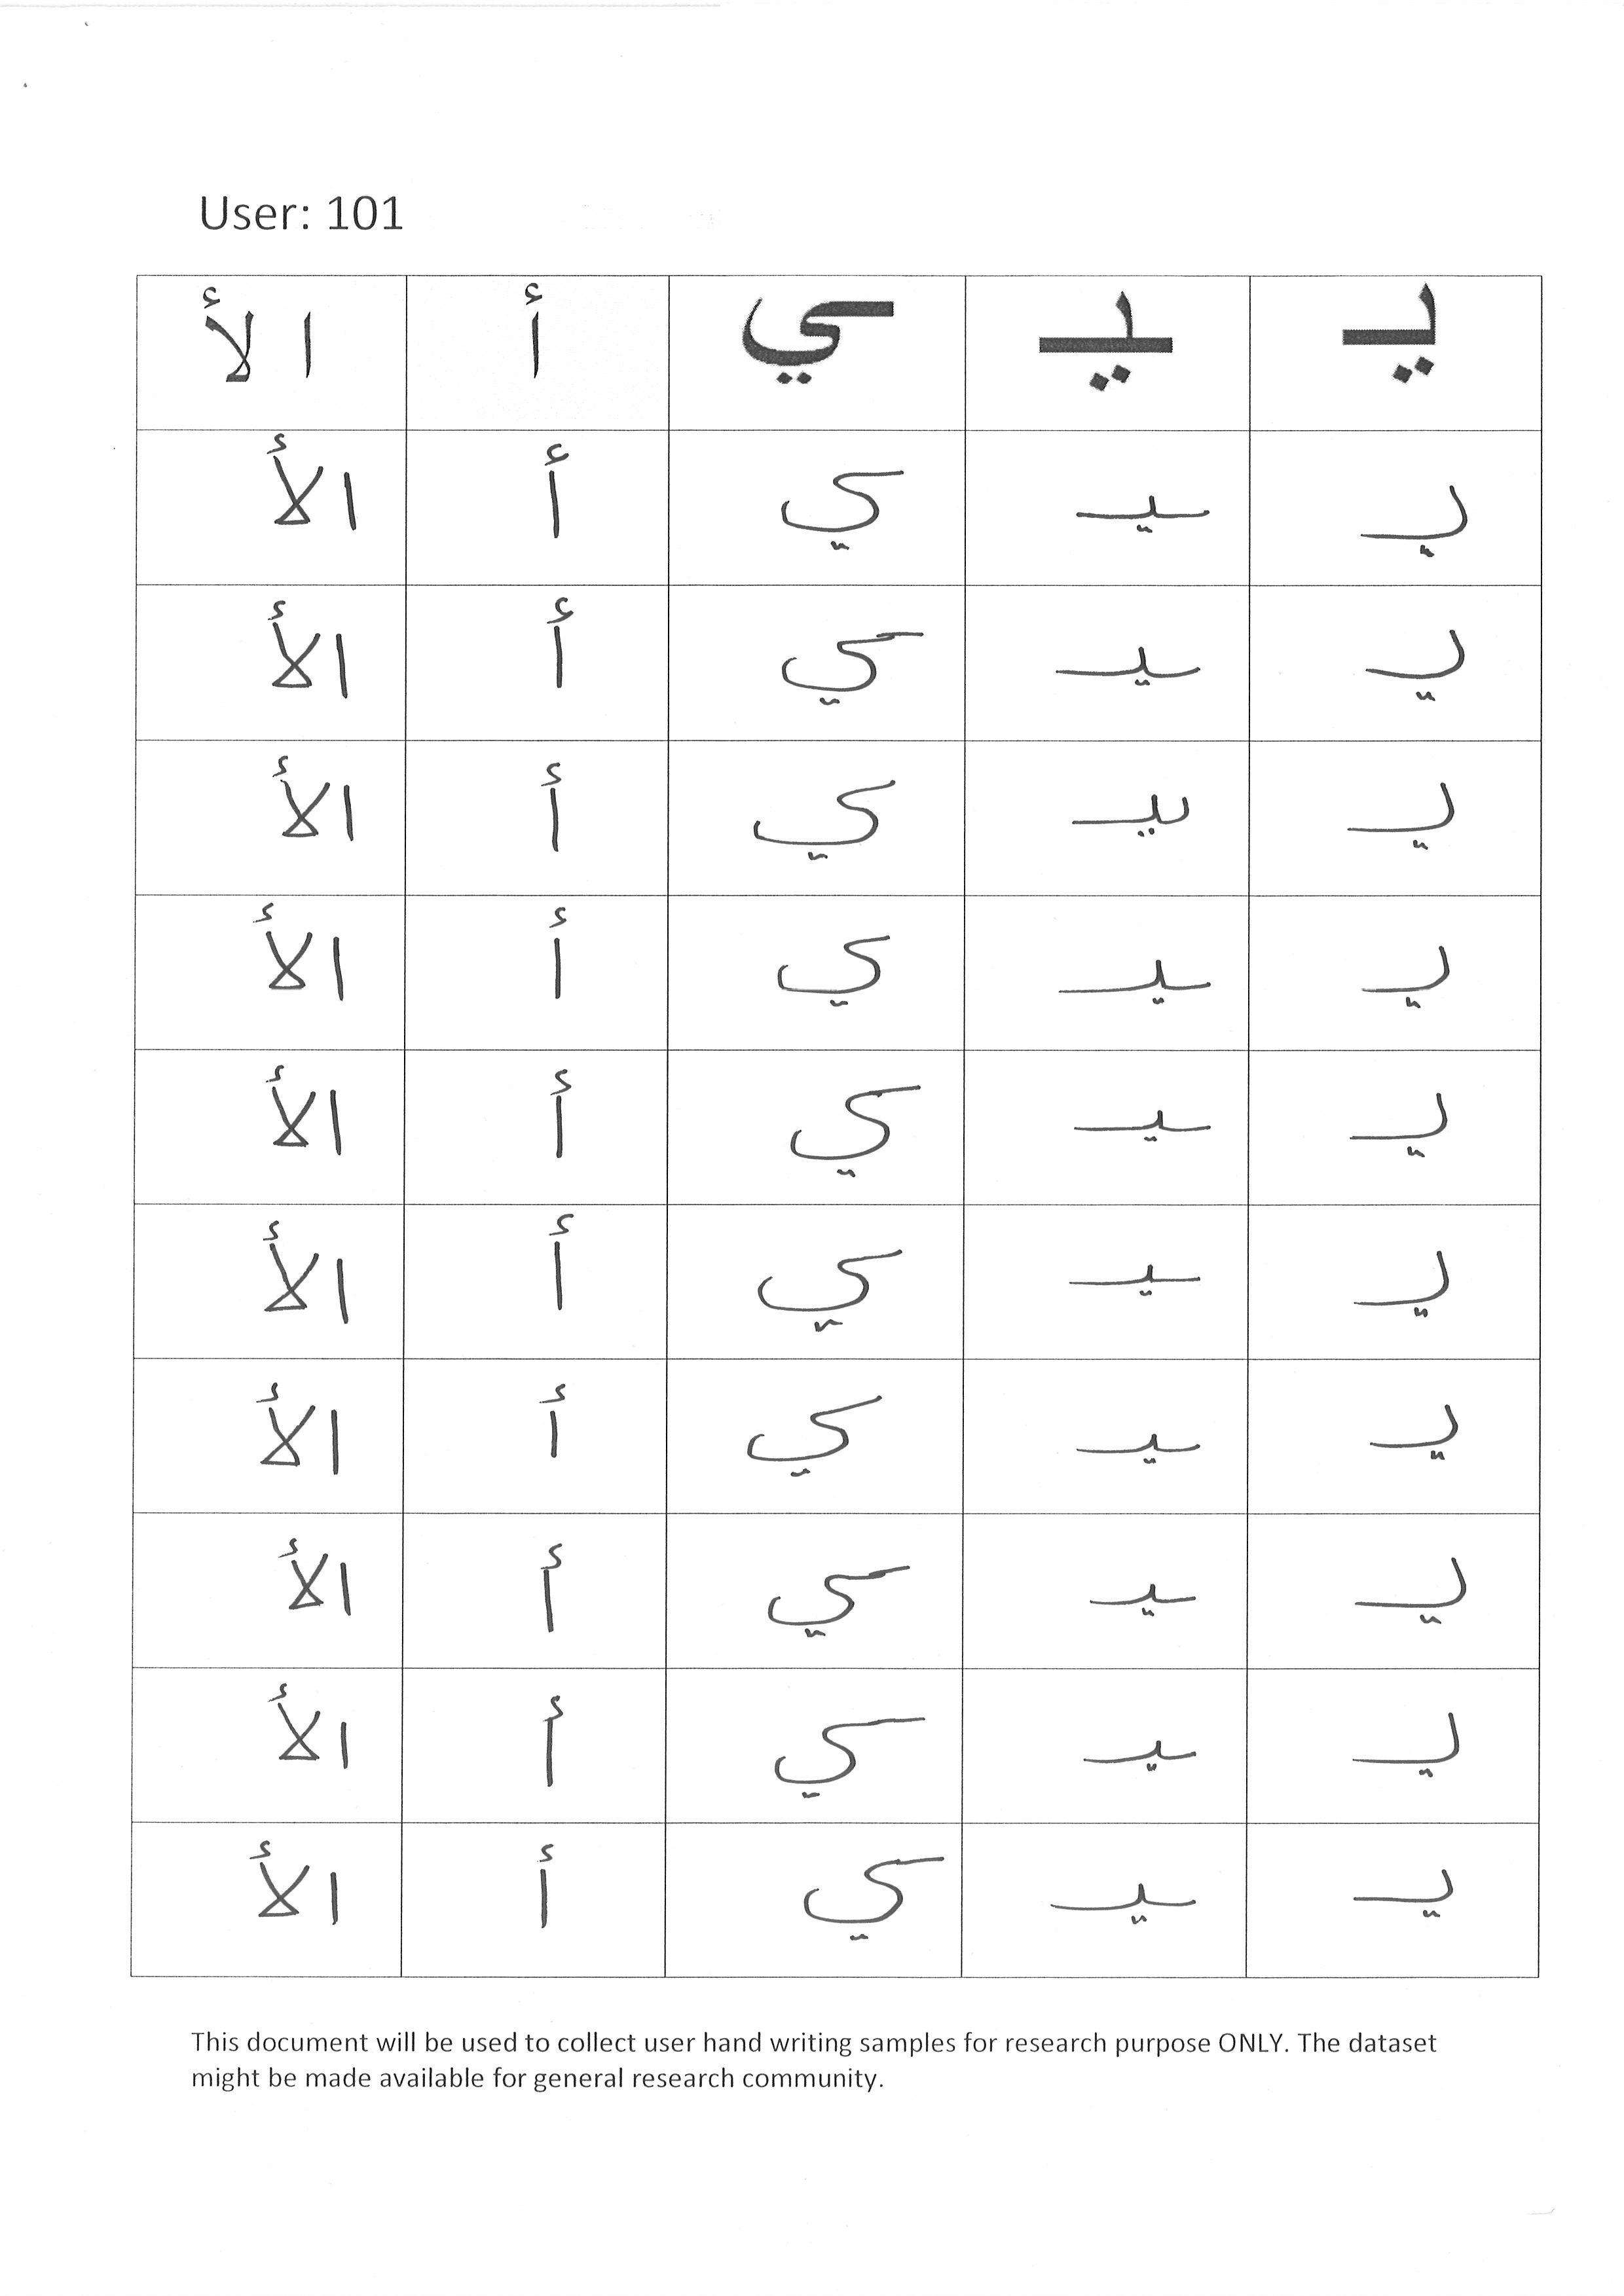 User: 101
يـ ـيـ ـي أ الأ
يـ ـيـ ـي أ الأ
يـ ـيـ ـي أ الأ
يـ ـيـ ـي أ الأ
يـ ـيـ ـي أ الأ
يـ ـيـ ـي أ الأ
يـ ـيـ ـي أ الأ
يـ ـيـ ـي أ الأ
يـ ـيـ ـي أ الأ
يـ ـيـ ـي أ الأ
يـ ـيـ ـي أ الأ
This document will be used to collect user hand writing samples for research purpose ONLY. The dataset
might be made available for general research community.